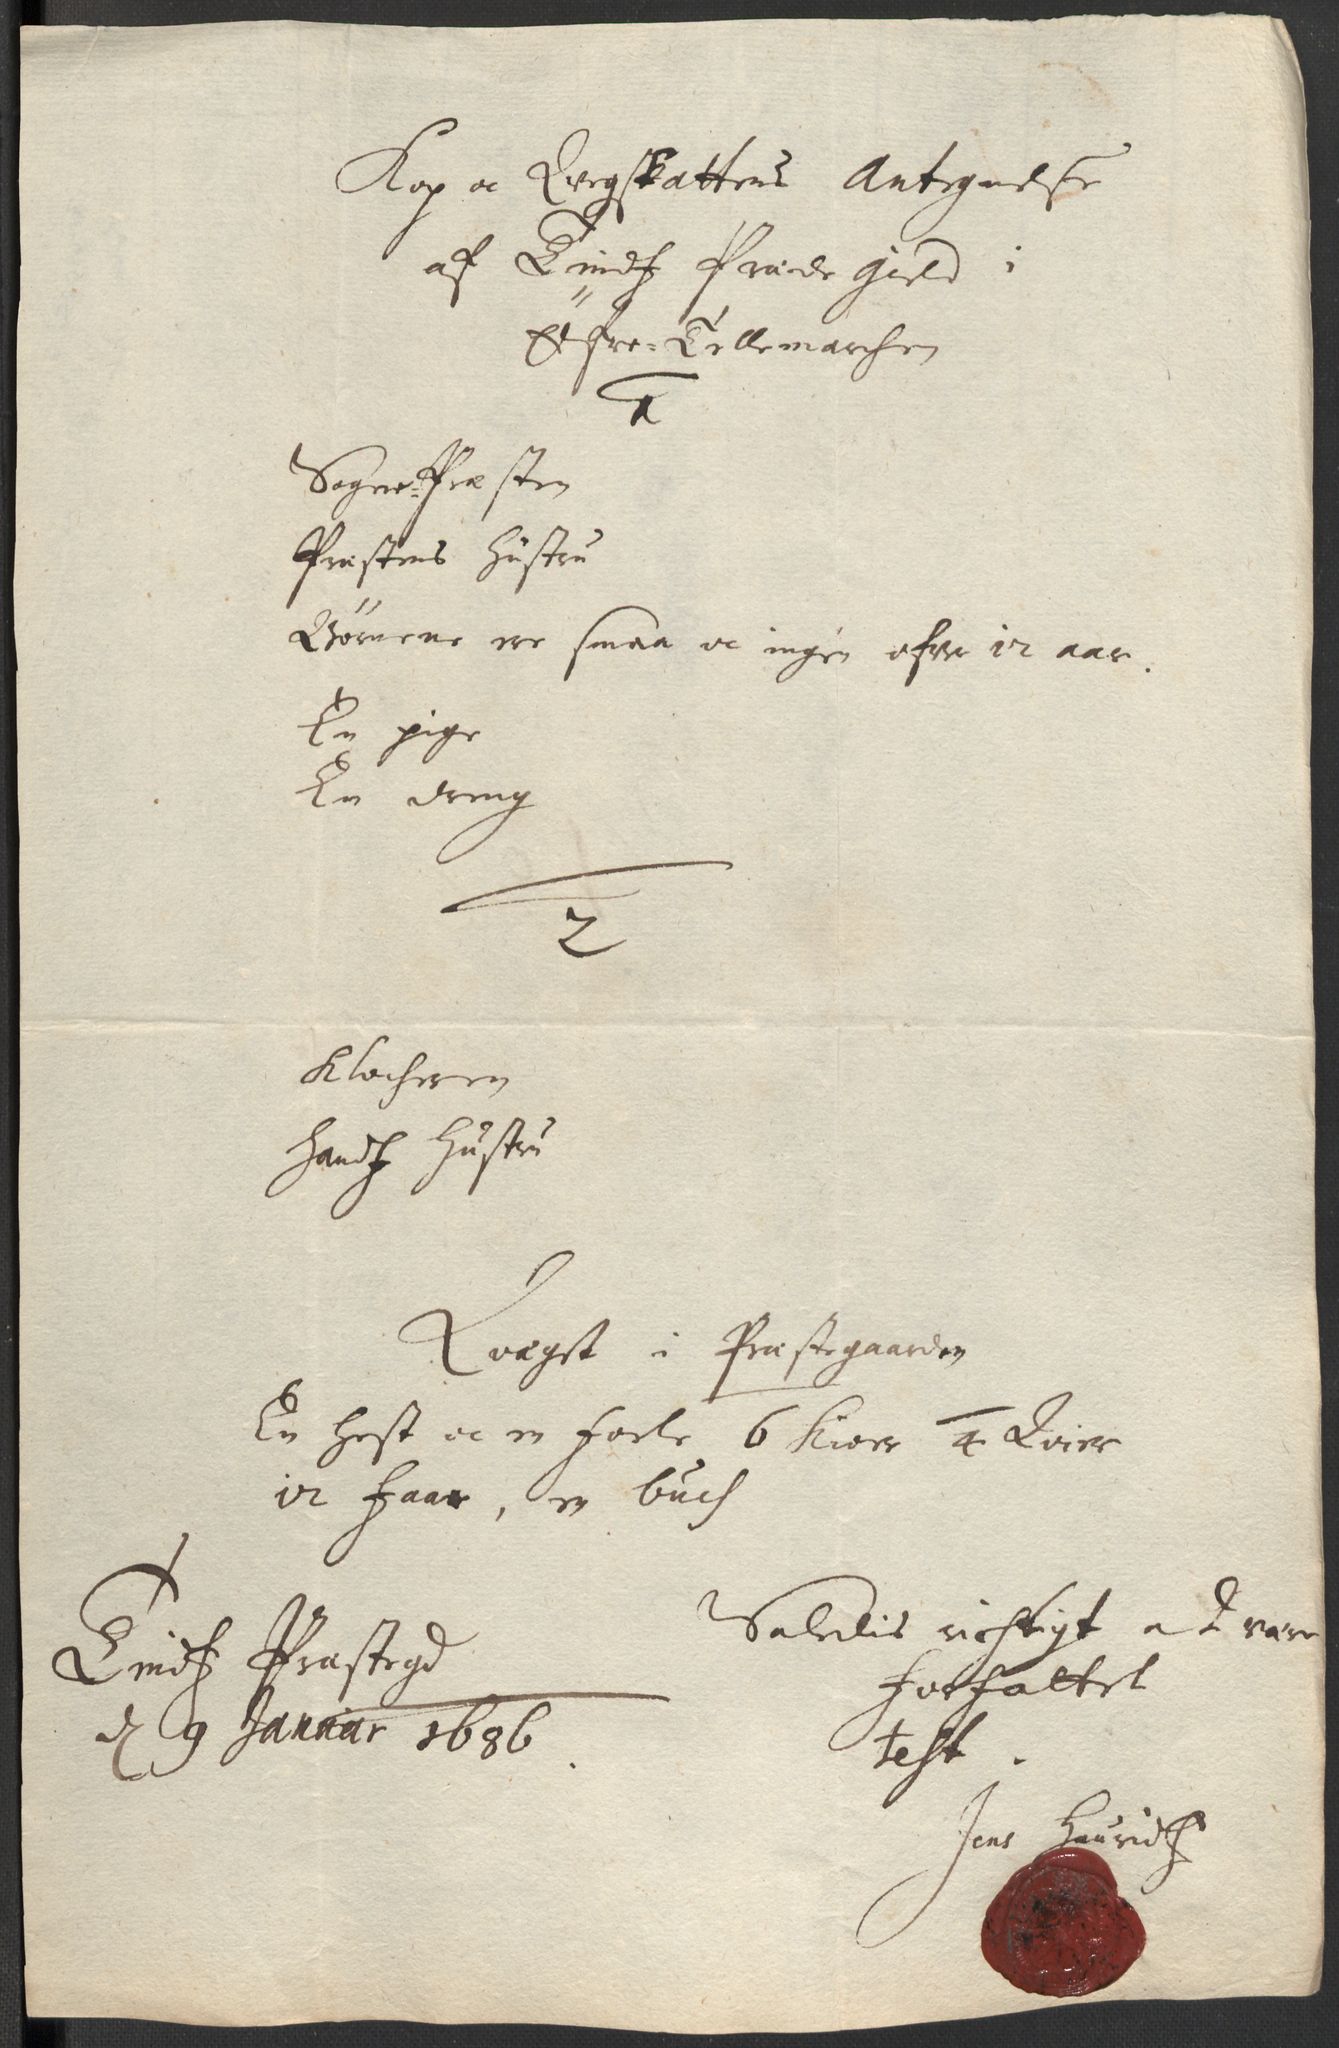 Kop oc Qvegskattens Antegnelse
af Tindz Præstegield i
Öfre-Tellemarchen
1
Sogne-Præsten
Præstens Hüstru
Börnene ere smaa oc ingen ofver 12 aar.
En pige
En dreng
2
Klocheren
Handz Hüstru
Qvægst i Præstegaarden
En hest oc en foele 6 Kiøer 4 Qvier
12 faar, en buch
Tindz Præstegd
d 9 Januar 1686.
Saaledis richtigt at være
forfattet
test.
Jens